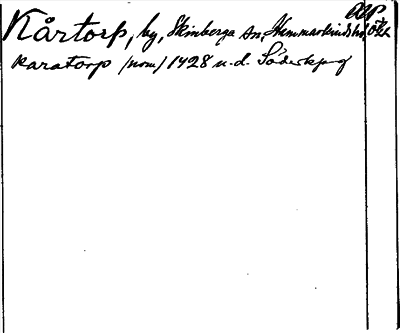 Kårtorp, by, Skönberga sn, Hammarkinds hd, Ögl
karatorp (nom) 1428 u.d. Söderkpg